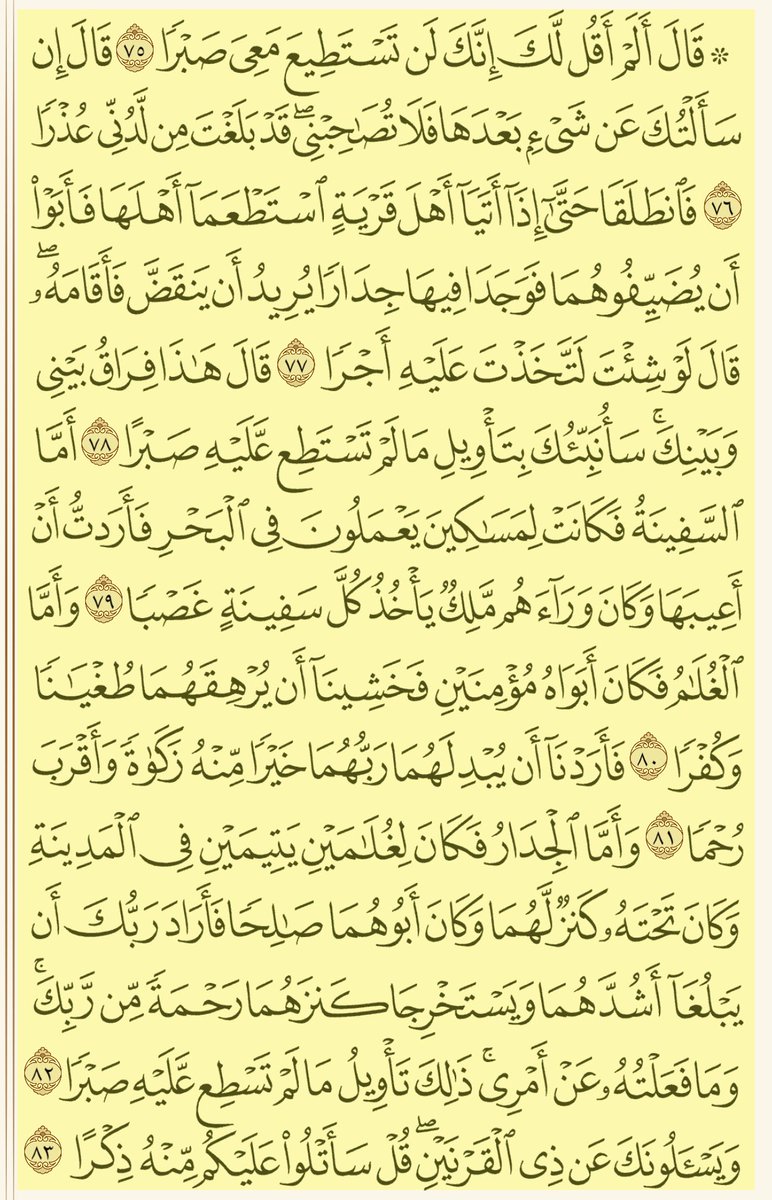 ۞ قَالَ أَلَمْ أَقُل لَّكَ إِنَّكَ لَن تَسْتَطِيعَ مَعِىَ صَبْرًا ٧٥ قَالَ إِن
سَأَلْتُكَ عَن شَىْءٍۭ بَعْدَهَا فَلَا تُصَـٰحِبْنِى ۖ قَدْ بَلَغْتَ مِن لَّدُنِّى عُذْرًا
٧٦ فَٱنطَلَقَا حَتَّىٰٓ إِذَآ أَتَيَآ أَهْلَ قَرْيَةٍ ٱسْتَطْعَمَآ أَهْلَهَا فَأَبَوْا۟
أَن يُضَيِّفُوهُمَا فَوَجَدَا فِيهَا جِدَارًا يُرِيدُ أَن يَنقَضَّ فَأَقَامَهُۥ ۖ
قَالَ لَوْ شِئْتَ لَتَّخَذْتَ عَلَيْهِ أَجْرًا ٧٧ قَالَ هَـٰذَا فِرَاقُ بَيْنِى
وَبَيْنِكَ ۚ سَأُنَبِّئُكَ بِتَأْوِيلِ مَا لَمْ تَسْتَطِع عَّلَيْهِ صَبْرًا ٧٨ أَمَّا
ٱلسَّفِينَةُ فَكَانَتْ لِمَسَـٰكِينَ يَعْمَلُونَ فِى ٱلْبَحْرِ فَأَرَدتُّ أَنْ
أَعِيبَهَا وَكَانَ وَرَآءَهُم مَّلِكٌ يَأْخُذُ كُلَّ سَفِينَةٍ غَصْبًا ٧٩ وَأَمَّا
ٱلْغُلَـٰمُ فَكَانَ أَبَوَاهُ مُؤْمِنَيْنِ فَخَشِينَآ أَن يُرْهِقَهُمَا طُغْيَـٰنًا
وَكُفْرًا ٨٠ فَأَرَدْنَآ أَن يُبْدِلَهُمَا رَبُّهُمَا خَيْرًا مِّنْهُ زَكَوٰةً وَأَقْرَبَ
رُحْمًا ٨١ وَأَمَّا ٱلْجِدَارُ فَكَانَ لِغُلَـٰمَيْنِ يَتِيمَيْنِ فِى ٱلْمَدِينَةِ
وَكَانَ تَحْتَهُۥ كَنزٌ لَّهُمَا وَكَانَ أَبُوهُمَا صَـٰلِحًا فَأَرَادَ رَبُّكَ أَن
يَبْلُغَآ أَشُدَّهُمَا وَيَسْتَخْرِجَا كَنزَهُمَا رَحْمَةً مِّن رَّبِّكَ ۚ
وَمَا فَعَلْتُهُۥ عَنْ أَمْرِى ۚ ذَٰلِكَ تَأْوِيلُ مَا لَمْ تَسْطِع عَّلَيْهِ صَبْرًا ٨٢
وَيَسْـَٔلُونَكَ عَن ذِى ٱلْقَرْنَيْنِ ۖ قُلْ سَأَتْلُوا۟ عَلَيْكُم مِّنْهُ ذِكْرًا ٨٣